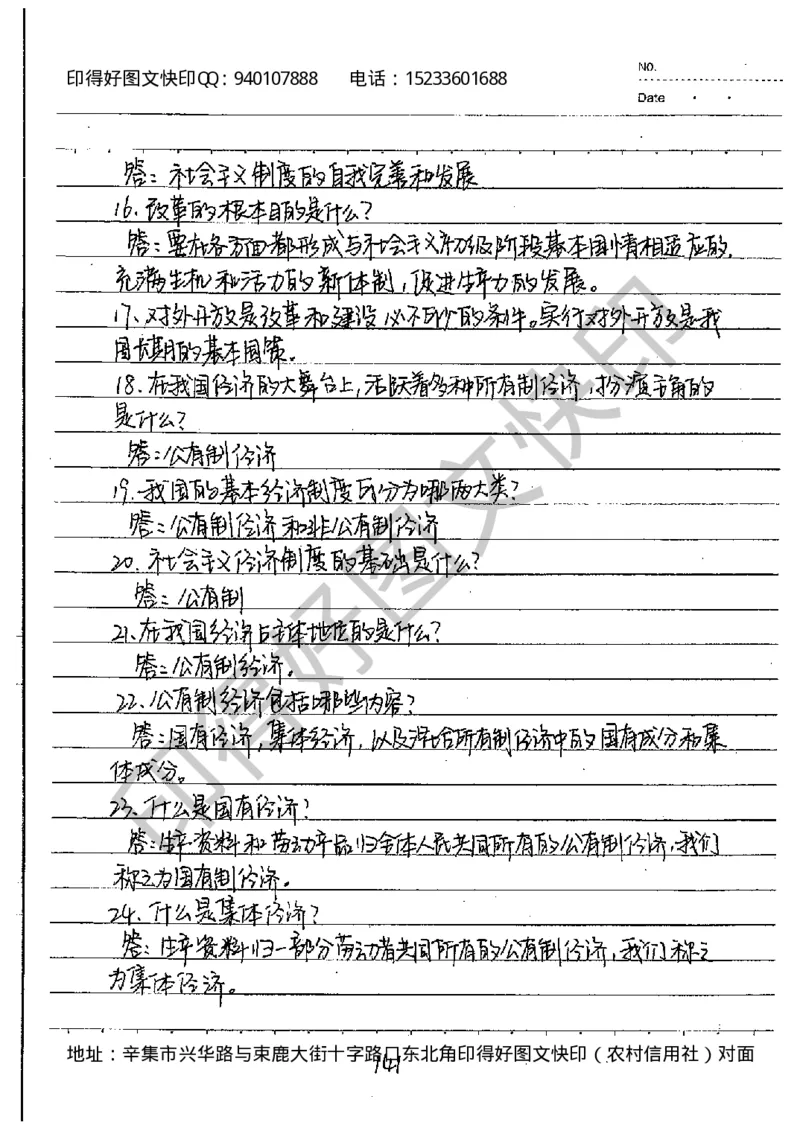 印得好图文快印QQ：940107888 电话：15233601688
No.
Date
答：社会主义制度的自我完善和发展
16、改革的根本目的是什么？
答：要在各方面都形成与社会主义初级阶段基本国情相适应的，
充满生机和活力的新体制，促进生产力的发展。
17、对外开放是改革和建设必不可少的条件。实行对外开放是我
国长期的基本国策。
18、在我国经济的大舞台上，活跃着多种所有制经济，扮演主角的
是什么？
答：公有制经济
19、我国的基本经济制度可分为哪两大类？
答：公有制经济和非公有制经济
20、社会主义经济制度的基础是什么？
答：公有制
21、在我国经济占主体地位的是什么？
答：公有制经济。
22、公有制经济包括哪些内容？
答：国有经济，集体经济，以及混合所有制经济中的国有成分和集
体成分。
23、什么是国有经济？
答：生产资料和劳动产品归全体人民共同所有的公有制经济，我们
称之为国有制经济。
24、什么是集体经济？
答：生产资料归一部分劳动者共同所有的公有制经济，我们称之
为集体经济。
地址：辛集市兴华路与束鹿大街十字路口东北角印得好图文快印（农村信用社）对面
141
印得好图文快印